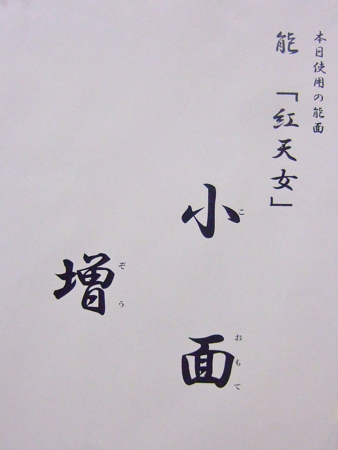 本日使用の能面
能「紅天女」
小面
こおもて
増
ぞう